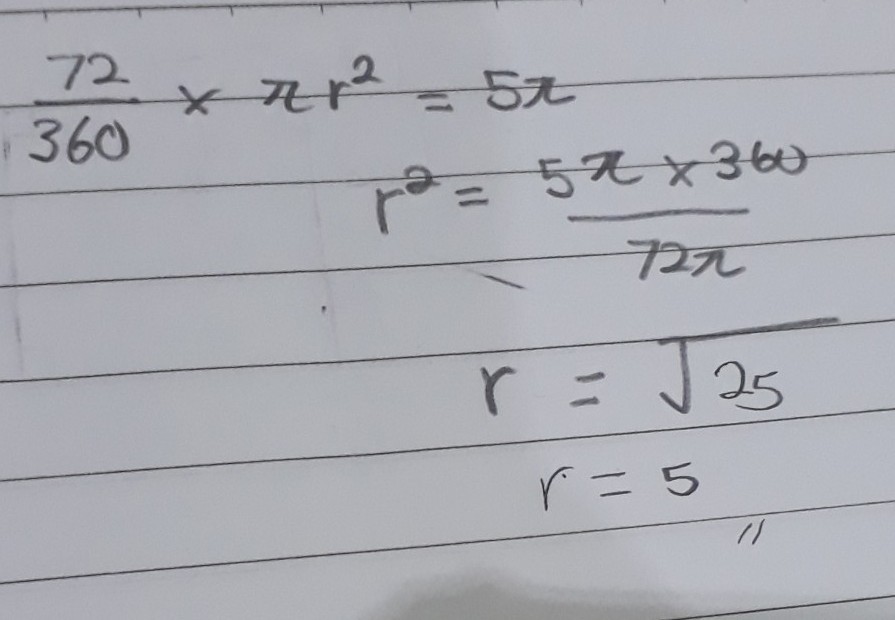 72/360 × πr² = 5π
r² = 5π × 360/72π
r = √25
r = 5 〃